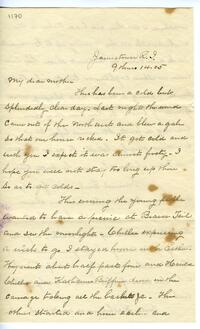 1170
Jamestown R.I.
9 mo 14. 05
My dear mother
This has been a cold but
splendidly clear day. Last night the wind
came out of the north and blew a gale
so that our house rocked. It got cold and
with you I expect it was almost frosty. I
hope you will not stay too long up there
so as to
This evening the young people
wanted to have a picnic at Beaver Tail
and see the moonlight.
a wish to go I stayed home with
They went about half past four and
and Katharine drove in the
carriage taking all the baskets &c. The
others started and